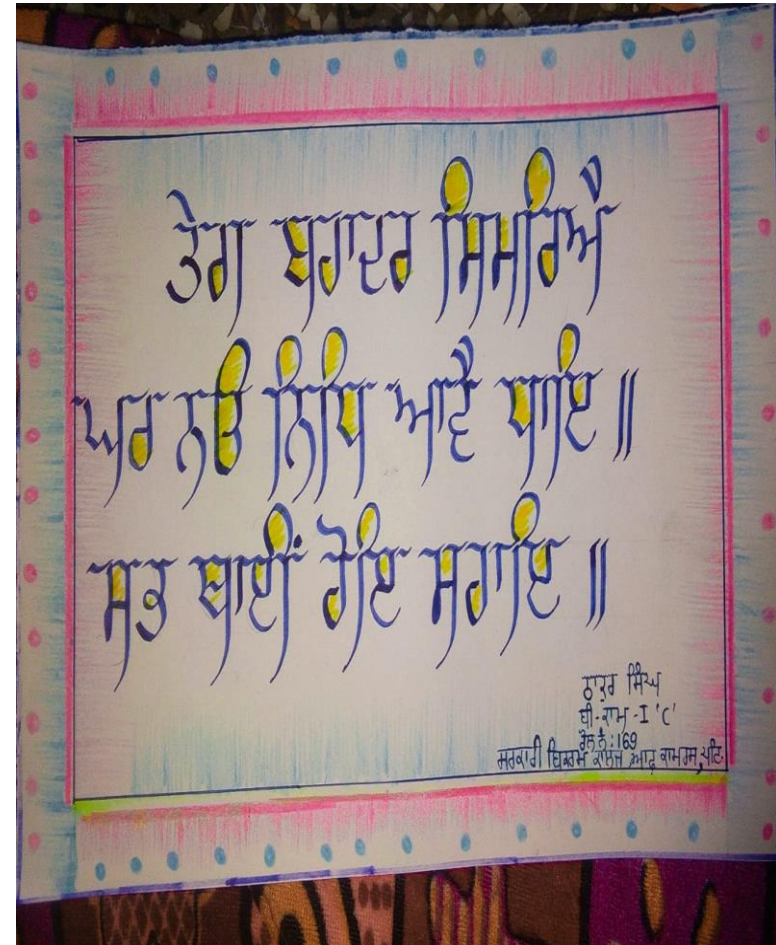 ਤੇਗ ਬਹਾਦਰ ਸਿਮਰਿਐ
ਘਰ ਨਉ ਨਿਧਿ ਆਵੈ ਧਾਇ ॥
ਸਭ ਥਾਈਂ ਹੋਇ ਸਹਾਇ ॥
ਠਾਕੁਰ ਸਿੰਘ
ਬੀ-ਕਾਮ -I 'C'
ਰੋਲ ਨੰ: 169
ਸਰਕਾਰੀ ਬਿਕਰਮ ਕਾਲਜ ਆਫ਼ ਕਾਮਰਸ, ਪਟਿ.